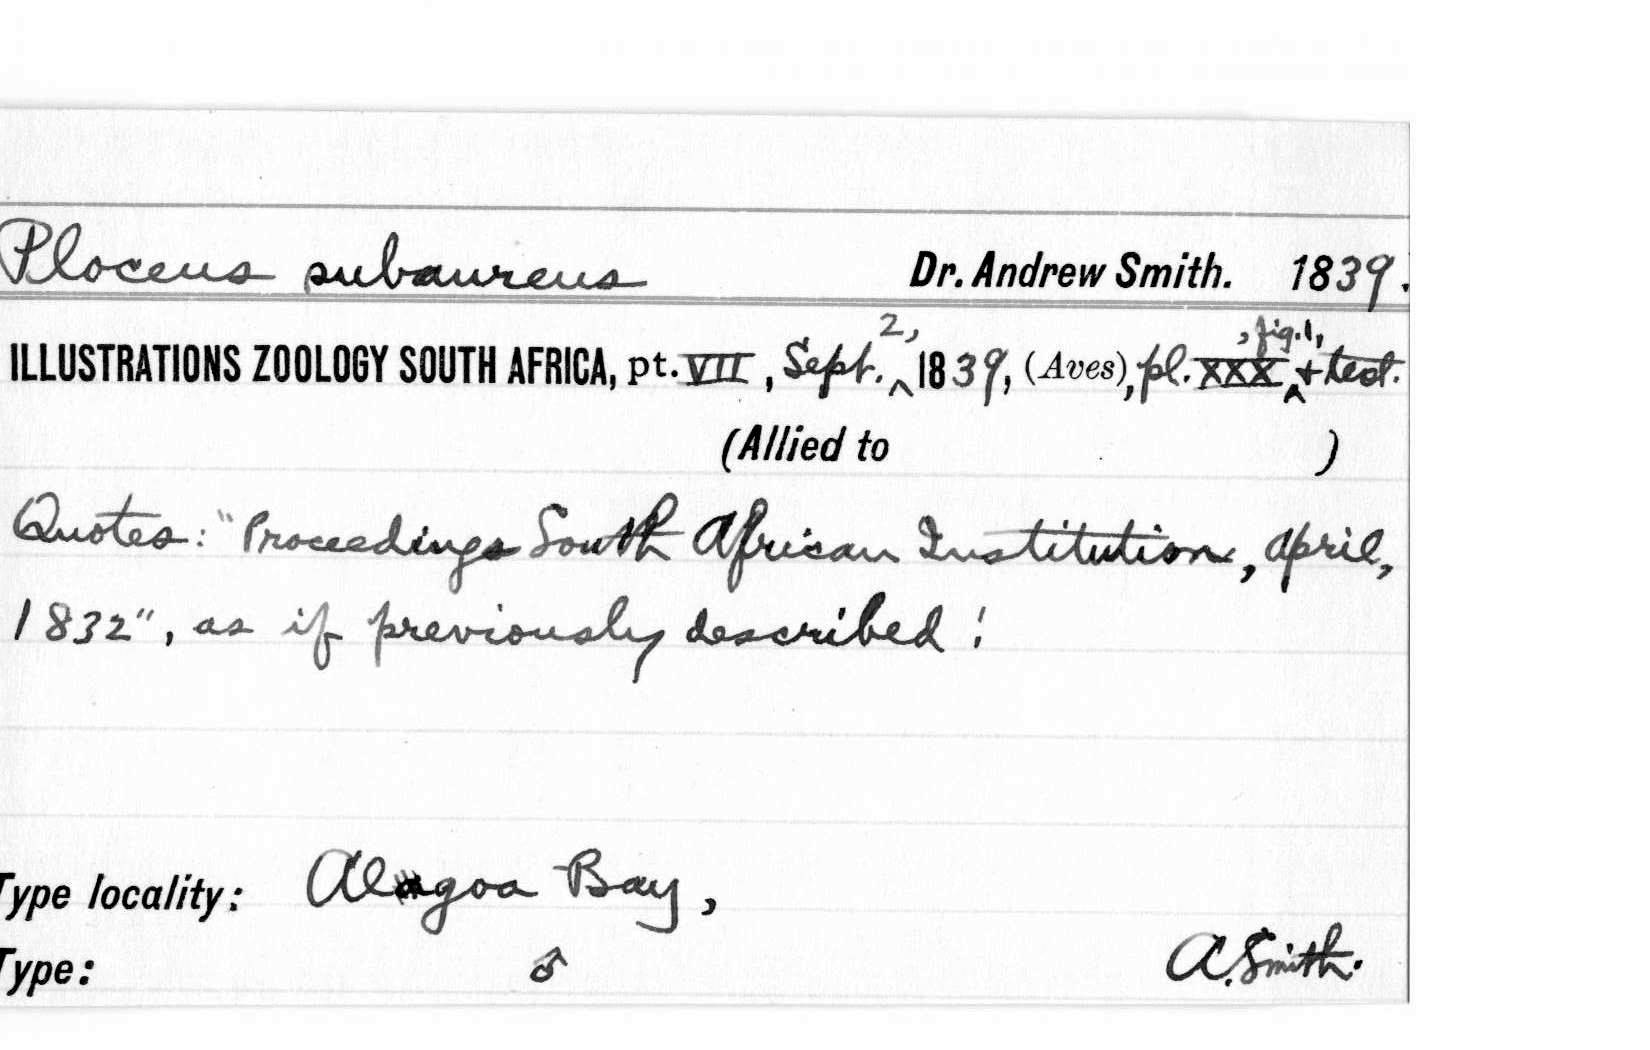 Ploceus subaureus Dr. Andrew Smith. 1839.
ILLUSTRATIONS ZOOLOGY SOUTH AFRICA, pt. VII, Sept. 2, 1839, (Aves), pl. XXX, fig. 1, + text.
(Allied to )
Quotes: "Proceedings South African Institution, April,
1832", as if previously described!
Type locality: Alagoa Bay,
Type: ♂ A. Smith.